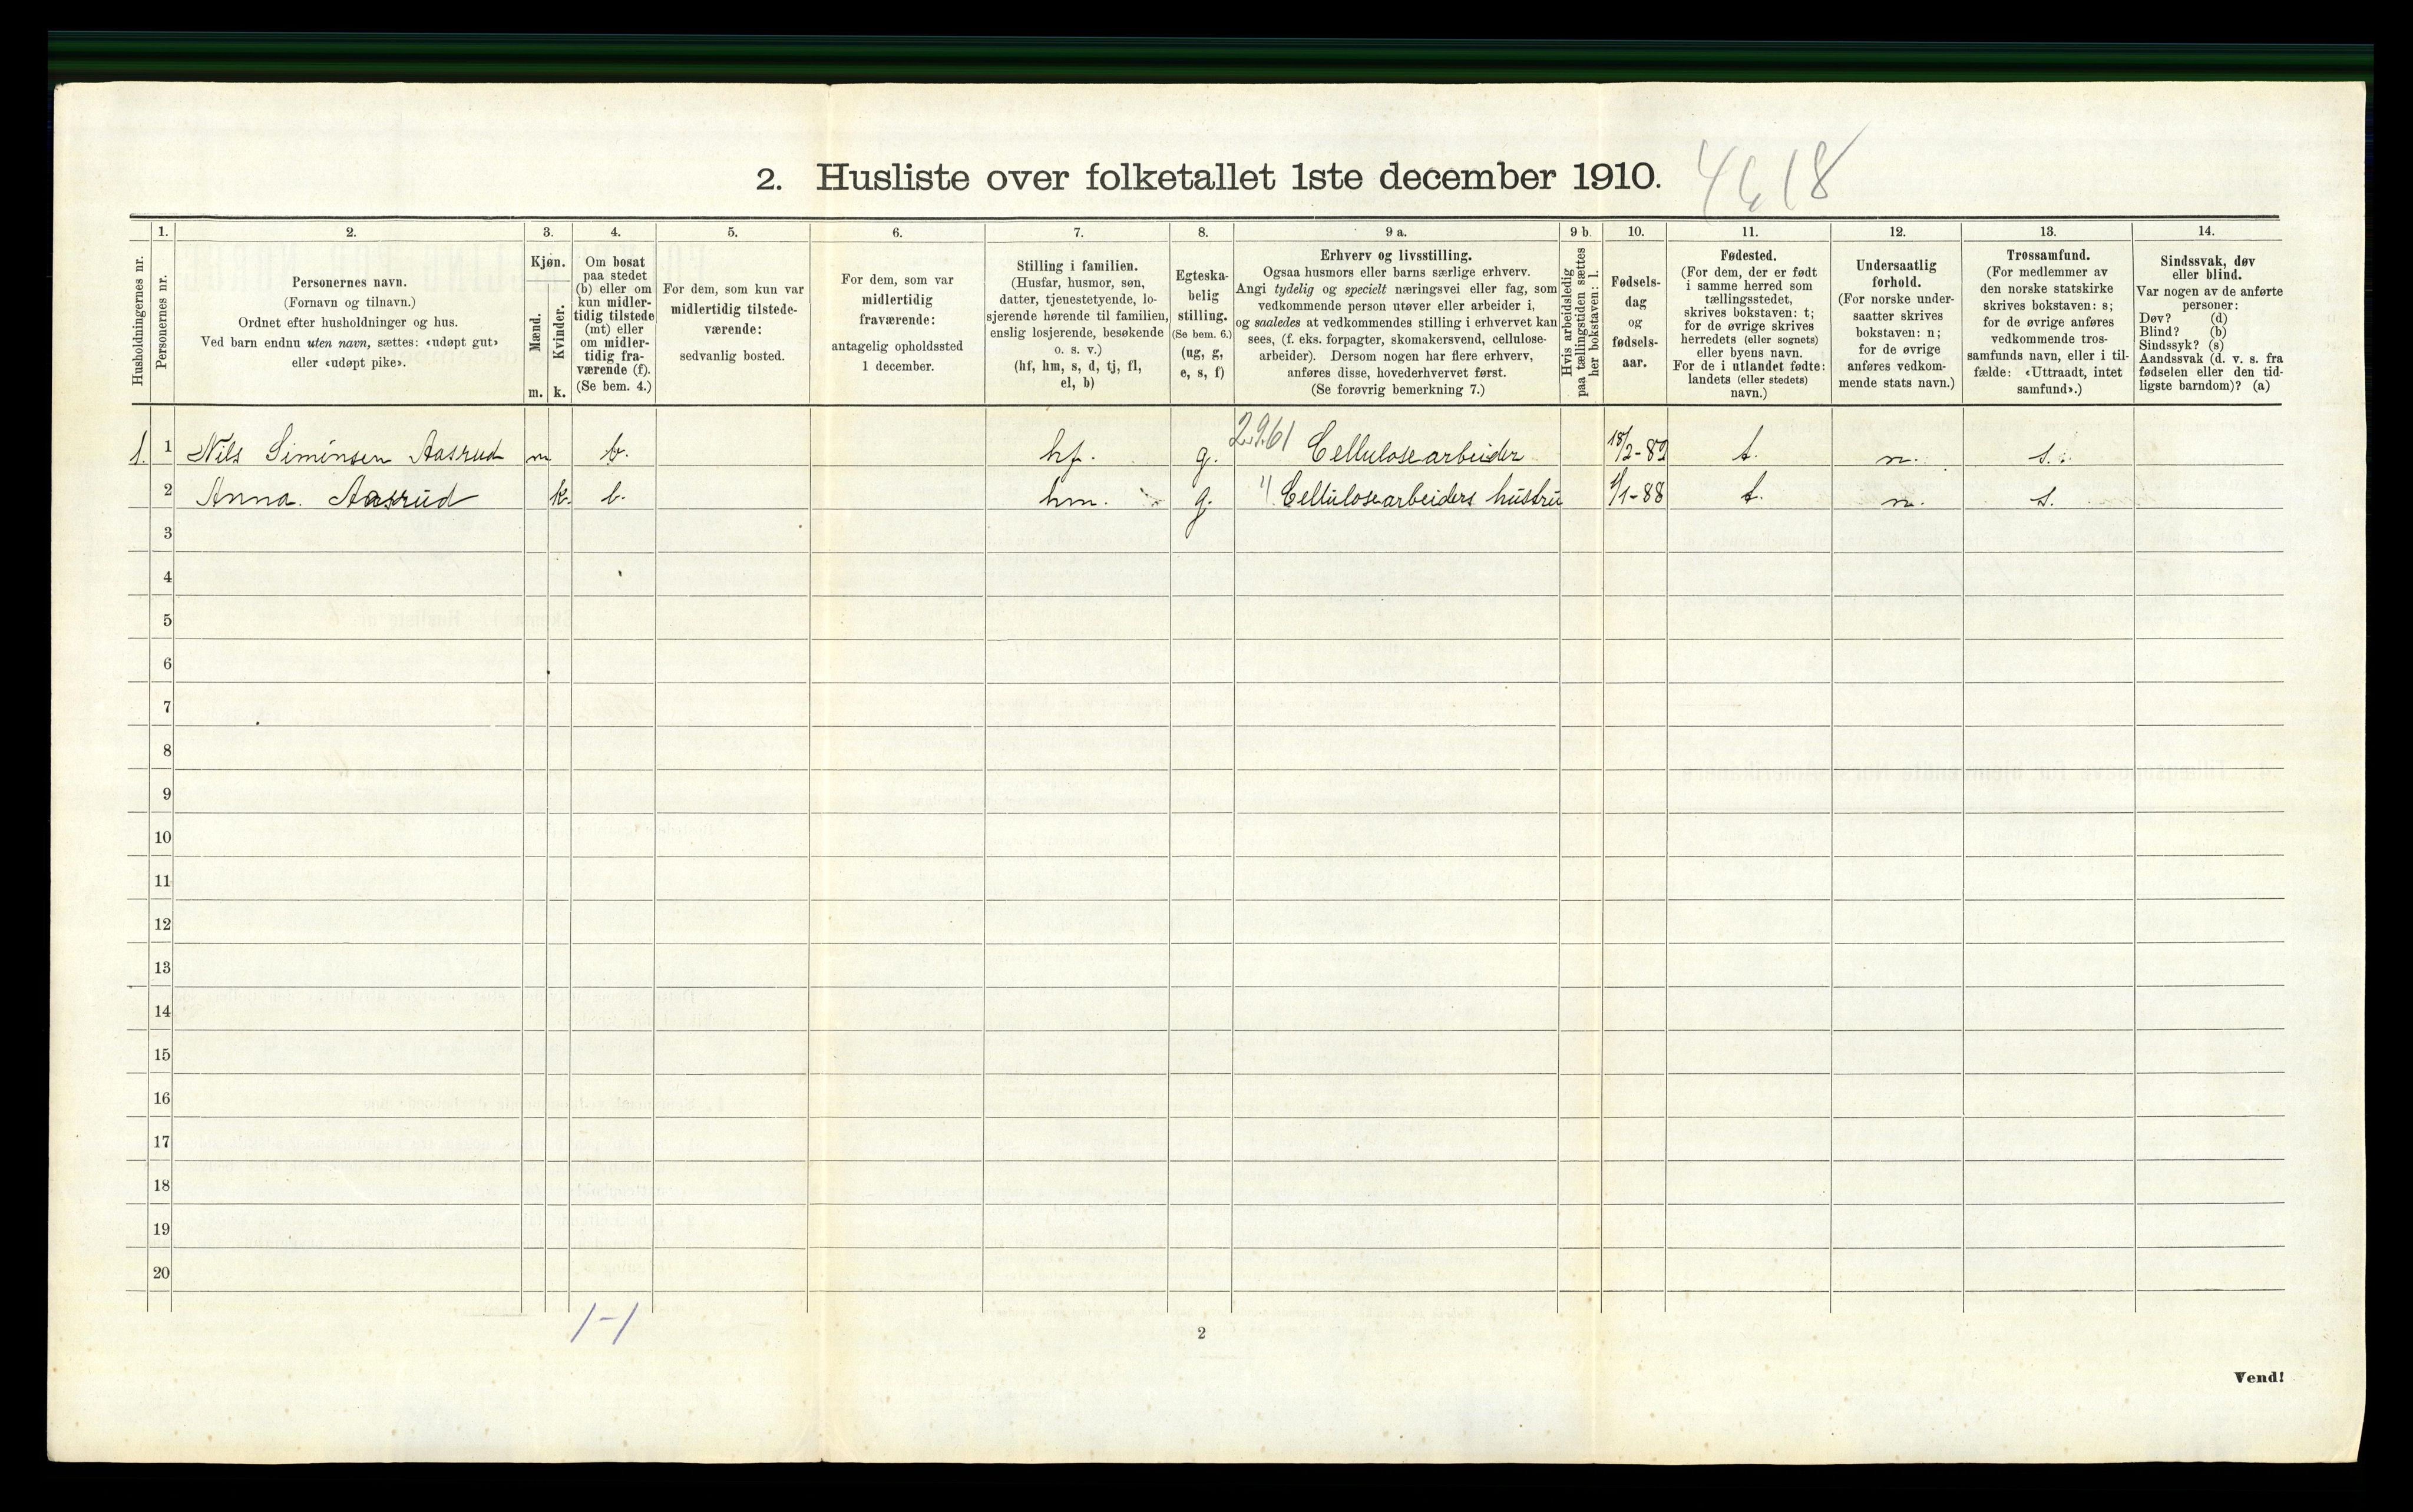 2. Husliste over folketallet 1ste december 1910.
Husholdningernes nr.
1.
Personernes nr.
2.
Personernes navn.
(Fornavn og tilnavn.)
Ordnet efter husholdninger og hus.
Ved barn endnu uten navn, sættes: «udøpt gut»
eller «udøpt pike».
3.
Kjøn.
Mænd.
Kvinder.
m. k.
4.
Om bosat
paa stedet
(b) eller om
kun midler-
tidig tilstede
(mt) eller
om midler-
tidig fra-
værende (f).
(Se bem. 4.)
5.
For dem, som kun var
midlertidig tilstede-
værende:
sedvanlig bosted.
6.
For dem, som var
midlertidig
fraværende:
antagelig opholdssted
1 december.
7.
Stilling i familien.
(Husfar, husmor, søn,
datter, tjenestetyende, lo-
sjerende hørende til familien,
enslig losjerende, besøkende
o. s. v.)
(hf, hm, s, d, tj, fl,
el, b)
8.
Egteska-
belig
stilling.
(Se bem. 6.)
(ug, g,
e, s, f)
9 a.
Erhverv og livsstilling.
Ogsaa husmors eller barns særlige erhverv.
Angi tydelig og specielt næringsvei eller fag, som
vedkommende person utøver eller arbeider i,
og saaledes at vedkommendes stilling i erhvervet kan
sees, (f. eks. forpagter, skomakersvend, cellulose-
arbeider). Dersom nogen har flere erhverv,
anføres disse, hovederhvervet først.
(Se forøvrig bemerkning 7.)
9 b.
Hvis arbeidsledig
paa tællingstiden sættes
her bokstaven: l.
10.
Fødsels-
dag
og
fødsels-
aar.
11.
Fødested.
(For dem, der er født
i samme herred som
tællingsstedet,
skrives bokstaven: t;
for de øvrige skrives
herredets (eller sognets)
eller byens navn.
For de i utlandet fødte:
landets (eller stedets)
navn.)
12.
Undersaatlig
forhold.
(For norske under-
saatter skrives
bokstaven: n;
for de øvrige
anføres vedkom-
mende stats navn.)
13.
Trossamfund.
(For medlemmer av
den norske statskirke
skrives bokstaven: s;
for de øvrige anføres
vedkommende tros-
samfunds navn, eller i til-
fælde: «Uttraadt, intet
samfund».)
14.
Sindssvak, døv
eller blind.
Var nogen av de anførte
personer:
Døv? (d)
Blind? (b)
Sindssyk? (s)
Aandssvak (d. v. s. fra
fødselen eller den tid-
ligste barndom)? (a)
1. 1 Nils Simensen Aasrud m b. hf. g. 2961 Cellulosearbeider 18/2-82 t. n. s.
2 Anna. Aasrud k. b. hm. g. " Cellulosearbeiders hustru 1/1-88 t. n. s.
3
4
5
6
7
8
9
10
11
12
13
14
15
16
17
18
19
20
1-1
2
Vend!